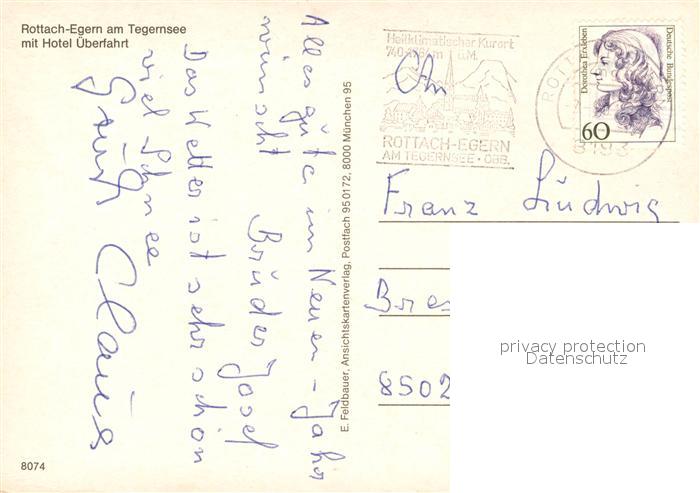 Rottach-Egern am Tegernsee
mit Hotel Überfahrt
Alles gute im Neuen-Jahr
wünscht Brüder Josef
Das Wetter ist sehr schön
viel Schnee
Gruß Claus
8074
E. Feldbauer, Ansichtskartenverlag, Postfach 95 0172, 8000 München 95
Heilklimatischer Kurort
ROTTACH-EGERN
AM TEGERNSEE · OBB.
8193
Dorothea Erxleben
Deutsche Bundespost
60
An
Franz Lüdwig
Bre
8502
privacy protection
Datenschutz